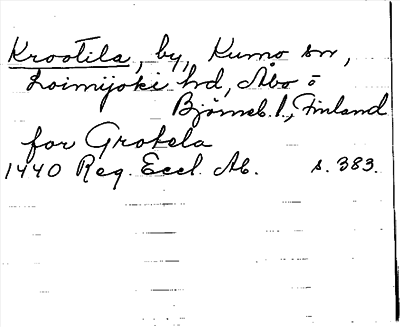 Krootila, by, Kumo sn,
Loimijoki hd, Åbo ö
Björneb. l., Finland
for Grotela
1440 Reg. Eccl. Ab. s. 383.